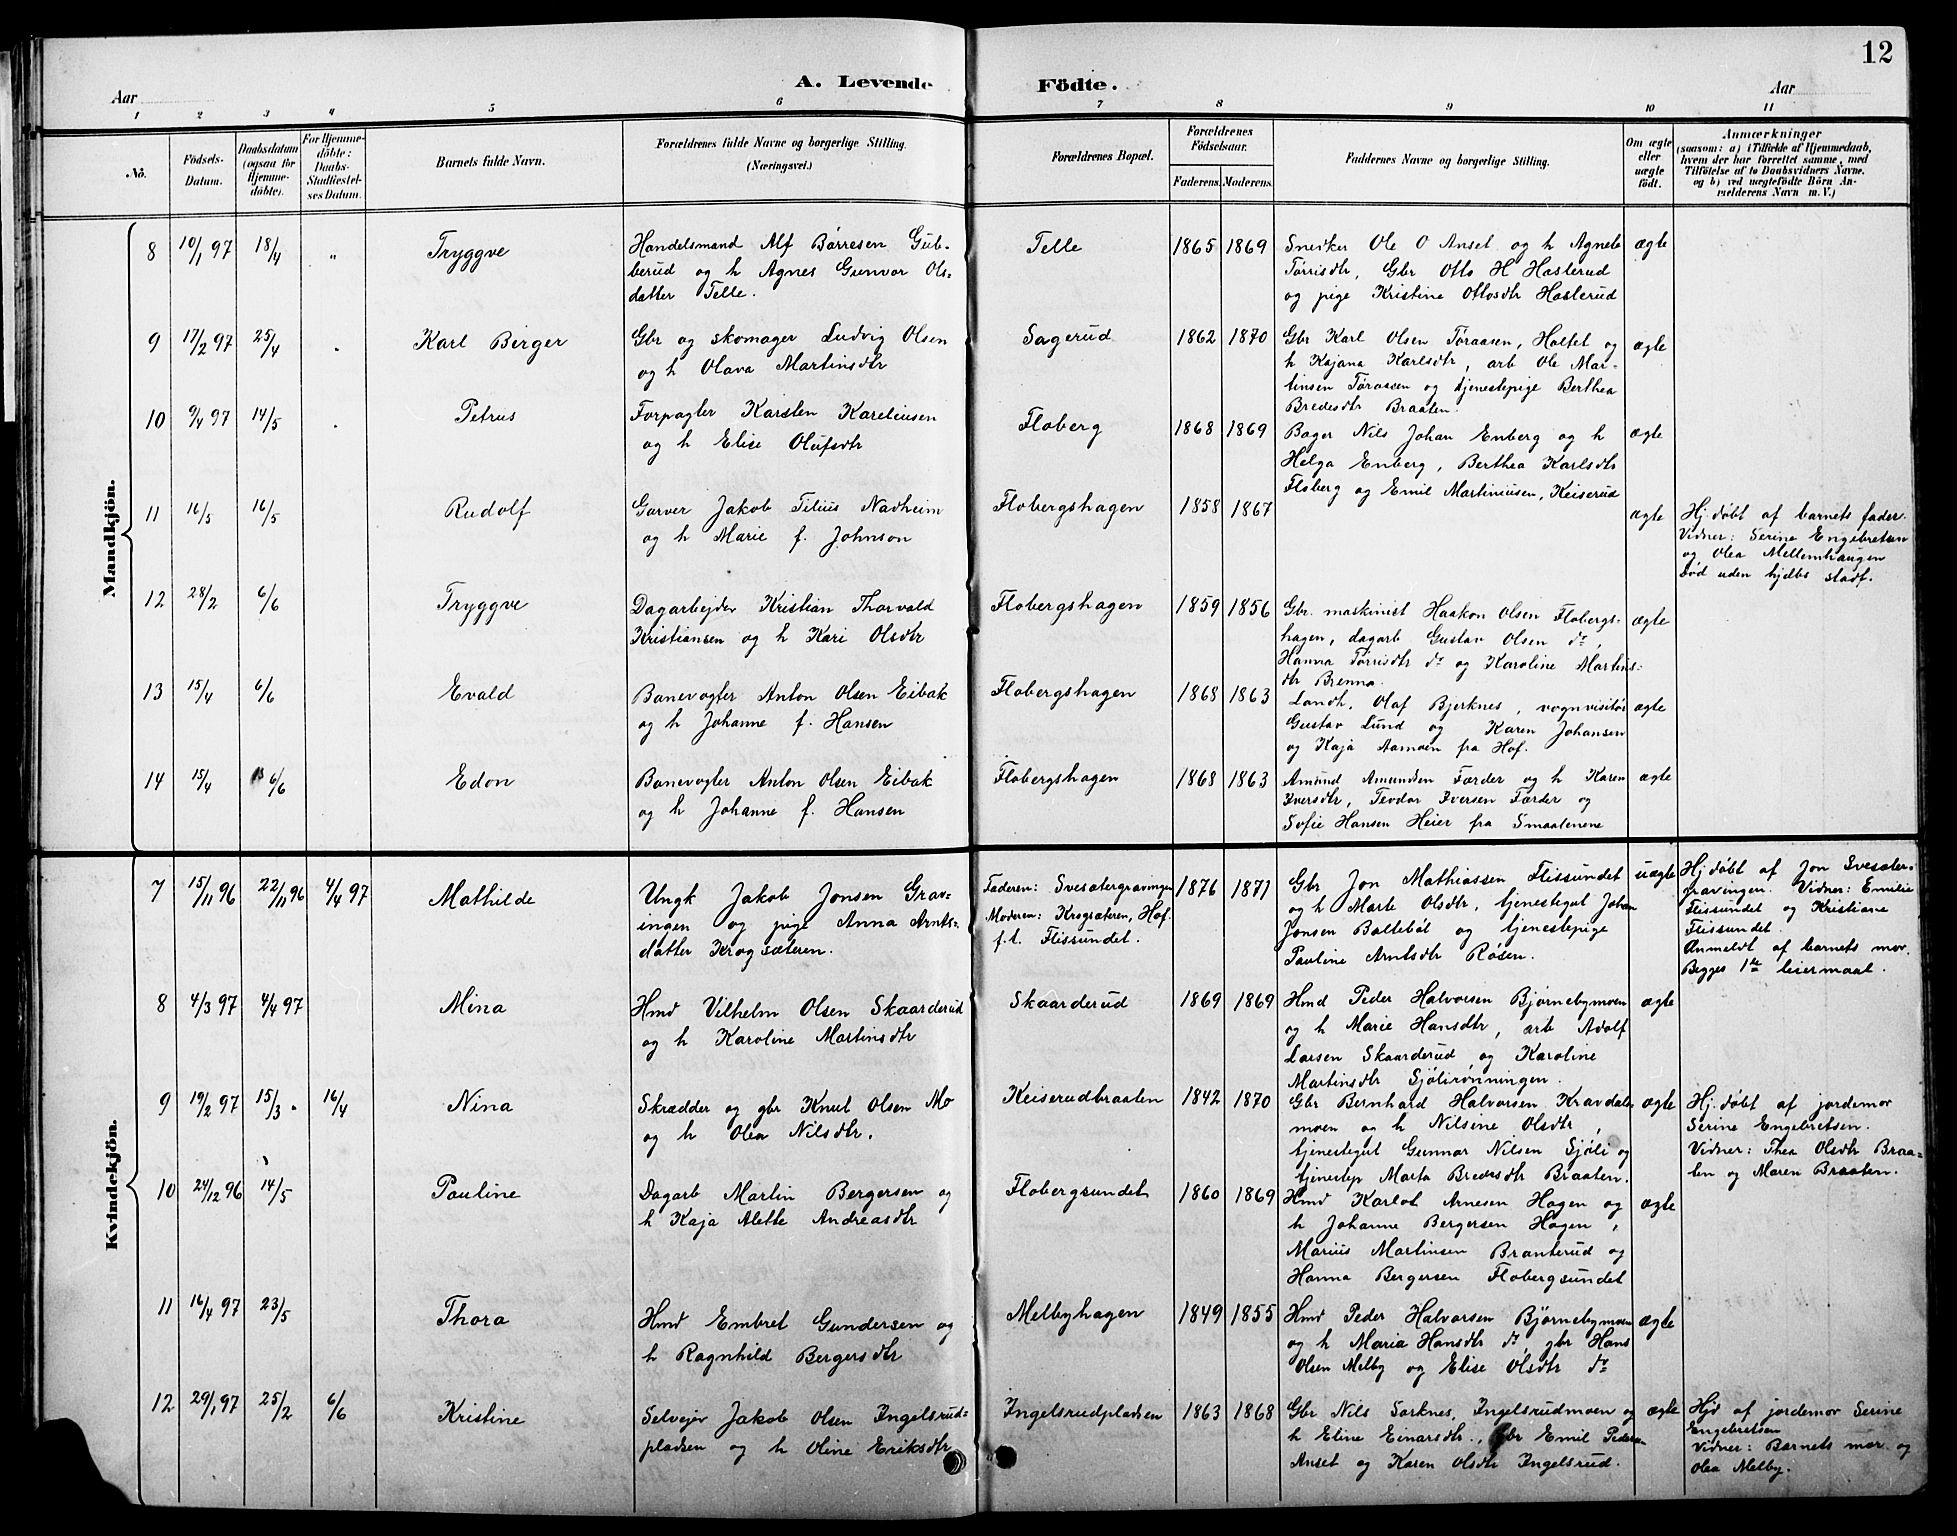 12
A. Levende Födte.
Aar
Aar
1 2 3 4 5 6 7 8 9 10 11
No.
Födsels-Datum.
Daabsdatum (ogsaa for Hjemmedöbte).
For Hjemmedöbte: Daabs-Stadfæstelses Datum.
Barnets fulde Navn.
Forældrenes fulde Navne og borgerlige Stilling. (Næringsvei.)
Forældrenes Bopæl.
Forældrenes Födselsaar.
Faderens. Moderens.
Faddernes Navne og borgerlige Stilling.
Om ægte eller uægte födt.
Anmærkninger
(saasom: a) i Tilfælde af Hjemmedaab,
hvem der har forrettet samme, med
Tilföielse af to Daabsvidners Navne,
og b) ved uægtefödte Börn An-
melderens Navn m. V.)
Mandkjön.
8 10/1 97 18/4 " Tryggve
Handelsmand Alf Børresen Gub-
berud og h Agnes Gunvor Ols-
datter Telle.
Telle 1865 1869
Snedker Ole O Anset og h Agnete
Tørrisdtr, Gbr Otto H Haslerud
og pige Kristine Ottosdtr Haslerud
ægte
9 17/2 97 25/4 . Karl Berger
Gbr og skomager Ludvig Olsen
og h Olava Martinsdtr
Sagerud 1862 1870
Gbr Karl Olsen Tøraasen, Haltet og
h Kajana Karlsdtr, arb Ole Mar-
tinsen Tøraasen og tjenestepige Berthea
Bredesdtr Braaten.
ægte
10 9/4 97 14/5 . Petrus
Forpagter Karsten Kareliusen
og h Elise Olufsdtr
Floberg 1868 1869
Bager Nils Johan Enberg og h
Helga Enberg, Berthea Karlsdtr
Floberg og Emil Martiniusen, Keiserud
ægte
11 16/5 16/5 Rudolf
Garver Jakob Tilius Nadheim
og h Marie f. Johnson
Flobergshagen 1858 1867
ægte
Hj. døbt af barnets fader.
Vidner: Serine Engebretsen
og Olea Mellemhaugen
Død uden kjelbs stadf.
12 28/2 6/6 Tryggve
Dagarbejder Kristian Thorvald
Kristiansen og h Kari Olsdtr
Flobergshagen 1859 1856
Gbr. maskinist Haakon Olsen Flobergs-
hagen, dagarb Gustav Olsen do,
Hanna Tørrisdtr do og Karoline Martins-
dtr Brenna.
ægte
13 15/4 6/6 Evald
Banevogter Anton Olsen Eibak
og h Johanne f. Hansen
Flobergshagen 1868 1863
Landh. Olaf Bjerknes, vognvisitør
Gustav Lund og Karen Johansen
og Kaja Aamoen fra Hof.
ægte
14 15/4 6/6 Edon
Banevogter Anton Olsen Eibak
og h Johanne f. Hansen
Flobergshagen 1868 1863
Amund Amundsen Færder og h Karen
Iversdtr, Teodor Iversen Færder og
Sofie Hansen Heier fra Smaalenene
ægte
Kvindekjön.
7 15/11 96 22/11 96 4/4 97 Mathilde
Ungk Jakob Jonsen Grav-
ingen og pige Anna Arnts-
datter Krogsæteren.
Faderen: Svesætergravingen
Moderen: Krogsæteren, Hof.
f.t. Flissundet.
1876 1871
Gbr Jon Mathiassen Flissundet
og h Marte Olsdtr, tjenestegut Johan
Jonsen Baltebøl og tjenestepige
Pauline Arntsdtr Røsen.
uægte
Hj. døbt af Jon Svesæter-
gravingen. Vidner: Emilie
Flissundet og Kristiane
Flissundet.
Anmeldt af barnets mor.
Begges 1ste leiermaal.
8 4/3 97 4/4 97 Mina
Hmd Vilhelm Olsen Skaarderud
og h Karoline Martinsdtr
Skaarderud 1869 1869
Hmd Peder Halvorsen Bjørnebymoen
og h Marie Hansdtr, arb Adolf
Larsen Skaarderud og Karoline
Martinsdtr Sjølirønningen.
ægte
9 19/2 97 15/3 . 16/4 Nina
Skrædder og gbr Knut Olsen Mo
og h Olea Nilsdtr.
Keiserudbraaten 1842 1870
Gbr Bernhard Halvorsen Kravdals-
moen og h Nilsine Olsdtr,
tjenestegut Gunnar Nilsen Sjøli og
tjenestep Marta Bredesdtr Braaten.
ægte
Hj. døbt af jordemor
Serine Engebretsen.
Vidner: Thea Olsdtr Braa-
ten og Maren Braaten.
10 24/12 96 14/5 Pauline
Dagarb Martin Bergersen og
h Kaja Alette Andreasdtr
Flobergsundet 1860 1869
Hmd Karlot Arnesen Hagen og
h Johanne Bergersen Hagen,
Marius Martinsen Branterud og
Hanna Bergersen Flobergsundet
ægte
11 16/4 97 23/5 Thora
Hmd Embret Gundersen og
h Ragnhild Bergersdtr
Melbyhagen 1849 1855
Hmd Peder Halvorsen Bjørnebymoen
og h Maria Hansdtr do, gbr Hans
Olsen Melby og Elise Olsdtr do
ægte
12 29/1 97 25/2 6/6 Kristine
Selvejer Jakob Olsen Ingelsrud-
pladsen og h Oline Eriksdtr
Ingelsrudpladsen 1863 1868
Gbr Nils Sorknes, Ingelsrudmoen og
h Eline Einarsdtr., Gbr Emil Pedersen
Anset og Karen Olsdtr Ingelsrud.
ægte
Hjd af jordemor Serine
Engebretsen
Vidner: Barnets mor og
Olea Melby.